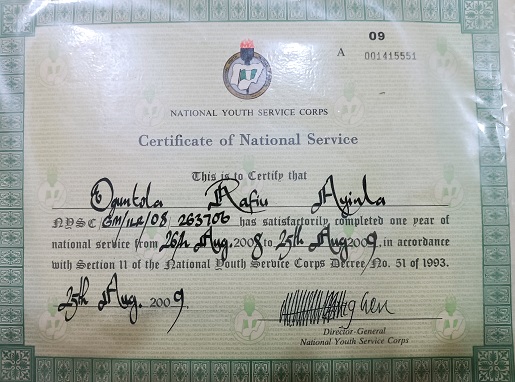 09
A 001415551
NATIONAL YOUTH SERVICE CORPS
Certificate of National Service
This is to Certify that
Oguntola Rafiu Ayinla
NYSC GM/ 08/ 263706 has satisfactorily completed one year of
national service from 26th Aug. 2008 to 25th Aug 2009, in accordance
with Section 11 of the National Youth Service Corps Decree, No. 51 of 1993.
25th Aug. 2009.
Director-General
National Youth Service Corps